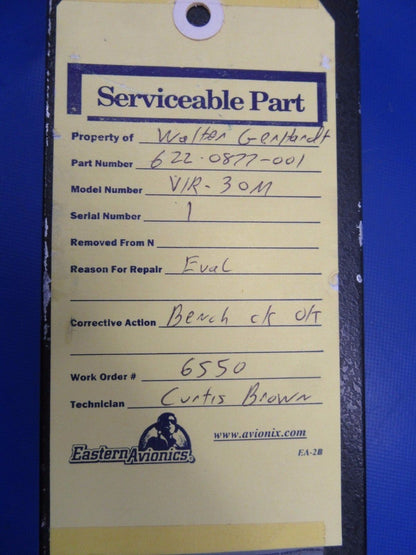 Serviceable Part
Property of Walter Gerhardt
Part Number 622-0877-001
Model Number VIR-30M
Serial Number 1
Removed From N
Reason For Repair Eval
Corrective Action Bench ck OK
Work Order # 6550
Technician Curtis Brown
Eastern Avionics
www.avionix.com
EA-2